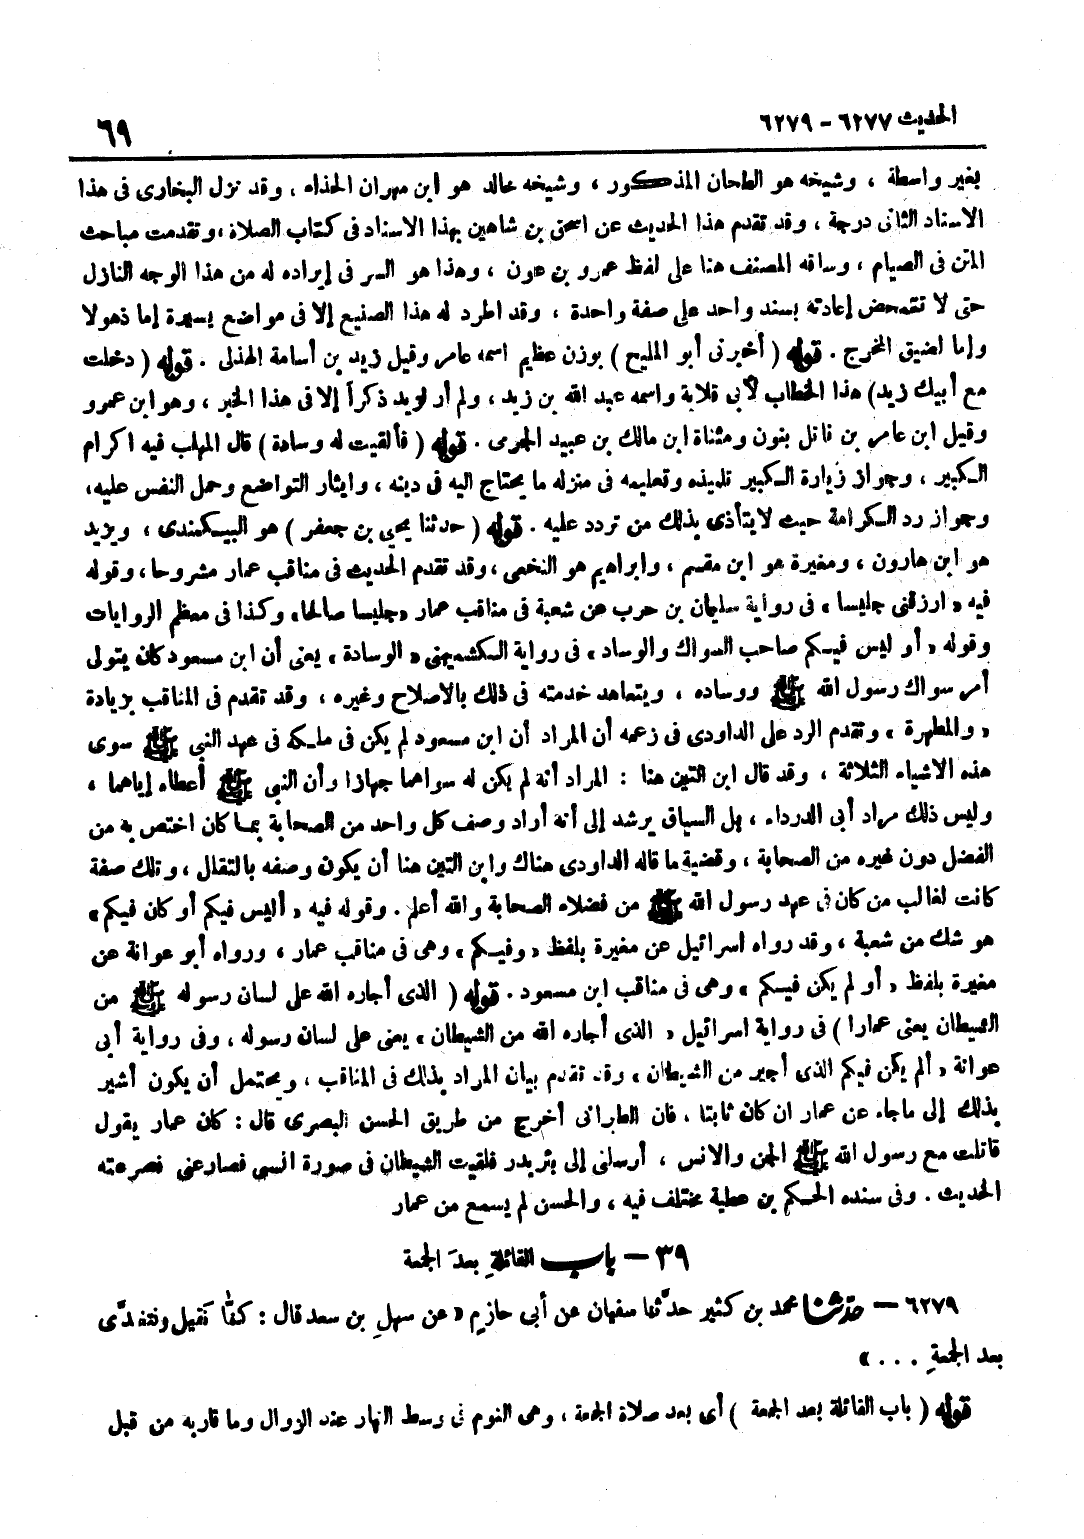 الحديث ٦٢٧٧ - ٦٢٧٩
٦٩
بغير واسطة ، وشيخه هو الطحان المذكور ، وشيخه خالد هو ابن مهران الحذاء ، وقد نزل البخارى فى هذا
الاسناد الثانى درجة ، وقد تقدم هذا الحديث عن اسحق بن شاهين بهذا الاسناد فى كتاب الصلاة ، وتقدمت مباحث
المتن فى الصيام ، وساقه المصنف هنا على لفظ عمرو بن عون ، وهذا هو السر فى إيراده له من هذا الوجه النازل
حتى لا تتمحض إعادته بسند واحد على صفة واحدة ، وقد اطرد له هذا الصنيع إلا فى مواضع يسيرة إما ذهولا
وإما لضيق المخرج . قوله ( أخبرنى أبو المليح ) بوزن عظيم اسمه عامر وقيل زيد بن أسامة الهذلى . قوله ( دخلت
مع أبيك زيد) هذا الخطاب لأبى قلابة واسمه عبد الله بن زيد ، ولم أر لزيد ذكراً إلا فى هذا الخبر ، وهو ابن عمرو
وقيل ابن عامر بن ناتل بنون ومثناة ابن مالك بن عبيد الجرمى . قوله ( فألقيت له وسادة ) قال المهلب فيه اكرام
الكبير ، وجواز زيارة الكبير تلميذه وتعليمه فى منزله ما يحتاج اليه فى دينه ، وايثار التواضع وحمل النفس عليه،
وجواز رد الكرامة حيث لا يتأذى بذلك من تردد عليه . قوله ( حدثنا يحيى بن جعفر ) هو البيكندى ، ويزيد
هو ابن هارون ، ومغيرة هو ابن مقسم ، وابراهيم هو النخعى ، وقد تقدم الحديث فى مناقب عمار مشروحا ، وقوله
فيه « ارزقنى جليسا » فى رواية سليمان بن حرب عن شعبة فى مناقب عمار «جليسا صالحا» وكذا فى معظم الروايات
وقوله « أو ليس فيكم صاحب السواك والوساد » فى رواية الكشميهنى « الوسادة » يعنى أن ابن مسعود كان يتولى
أمر سواك رسول الله ﷺ ووساده ، ويتعاهد خدمته فى ذلك بالاصلاح وغيره ، وقد تقدم فى المناقب بزيادة
« والمطهرة » وتقدم الرد على الداودى فى زعمه أن المراد أن ابن مسعود لم يكن فى ملكه فى عهد النبى ﷺ سوى
هذه الاشياء الثلاثة ، وقد قال ابن التين هنا : المراد أنه لم يكن له سواهما جهازا وأن النبى ﷺ أعطاه إياهما ،
وليس ذلك مراد أبى الدرداء ، بل السياق يرشد إلى أنه أراد وصف كل واحد من الصحابة بما كان اختص به من
الفضل دون غيره من الصحابة ، وقضية ما قاله الداودى هناك وابن التين هنا أن يكون وصفه بالتقلل ، وتلك صفة
كانت لغالب من كان فى عهد رسول الله ﷺ من فضلاء الصحابة والله أعلم . وقوله فيه « أليس فيكم أو كان فيكم »
هو شك من شعبة ، وقد رواه اسرائيل عن مغيرة بلفظ « وفيكم » وهى فى مناقب عمار ، ورواه أبو عوانة عن
مغيرة بلفظ « أو لم يكن فيكم » وهى فى مناقب ابن مسعود . قوله ( الذى أجاره الله على لسان رسوله ﷺ من
الشيطان يعنى عمارا ) فى رواية اسرائيل « الذى أجاره الله من الشيطان » يعنى على لسان رسوله ، وفى رواية أبى
عوانة « ألم يكن فيكم الذى أجير من الشيطان » وقد تقدم بيان المراد بذلك فى المناقب ، ويحتمل أن يكون أشير
بذلك إلى ماجاء عن عمار ان كان ثابتا ، فان الطبرانى أخرج من طريق الحسن البصرى قال : كان عمار يقول
قاتلت مع رسول الله ﷺ الجن والانس ، أرسلنى إلى بئر بدر فلقيت الشيطان فى صورة انسى فصارعنى فصرعته
الحديث . وفى سنده الحكم بن عطية مختلف فيه ، والحسن لم يسمع من عمار
٣٩ - باب القائلةِ بعدَ الجمعة
٦٢٧٩ - حدثنا محمد بن كثير حدَّثنا سفيان عن أبى حازم « عن سهلِ بن سعد قال : كنّا نَقيل ونتغدَّى
بعد الجمعةِ . . . »
قوله ( باب القائلة بعد الجمعة ) أى بعد صلاة الجمعة ، وهى النوم فى وسط النهار عند الزوال وما قاربه من قبل